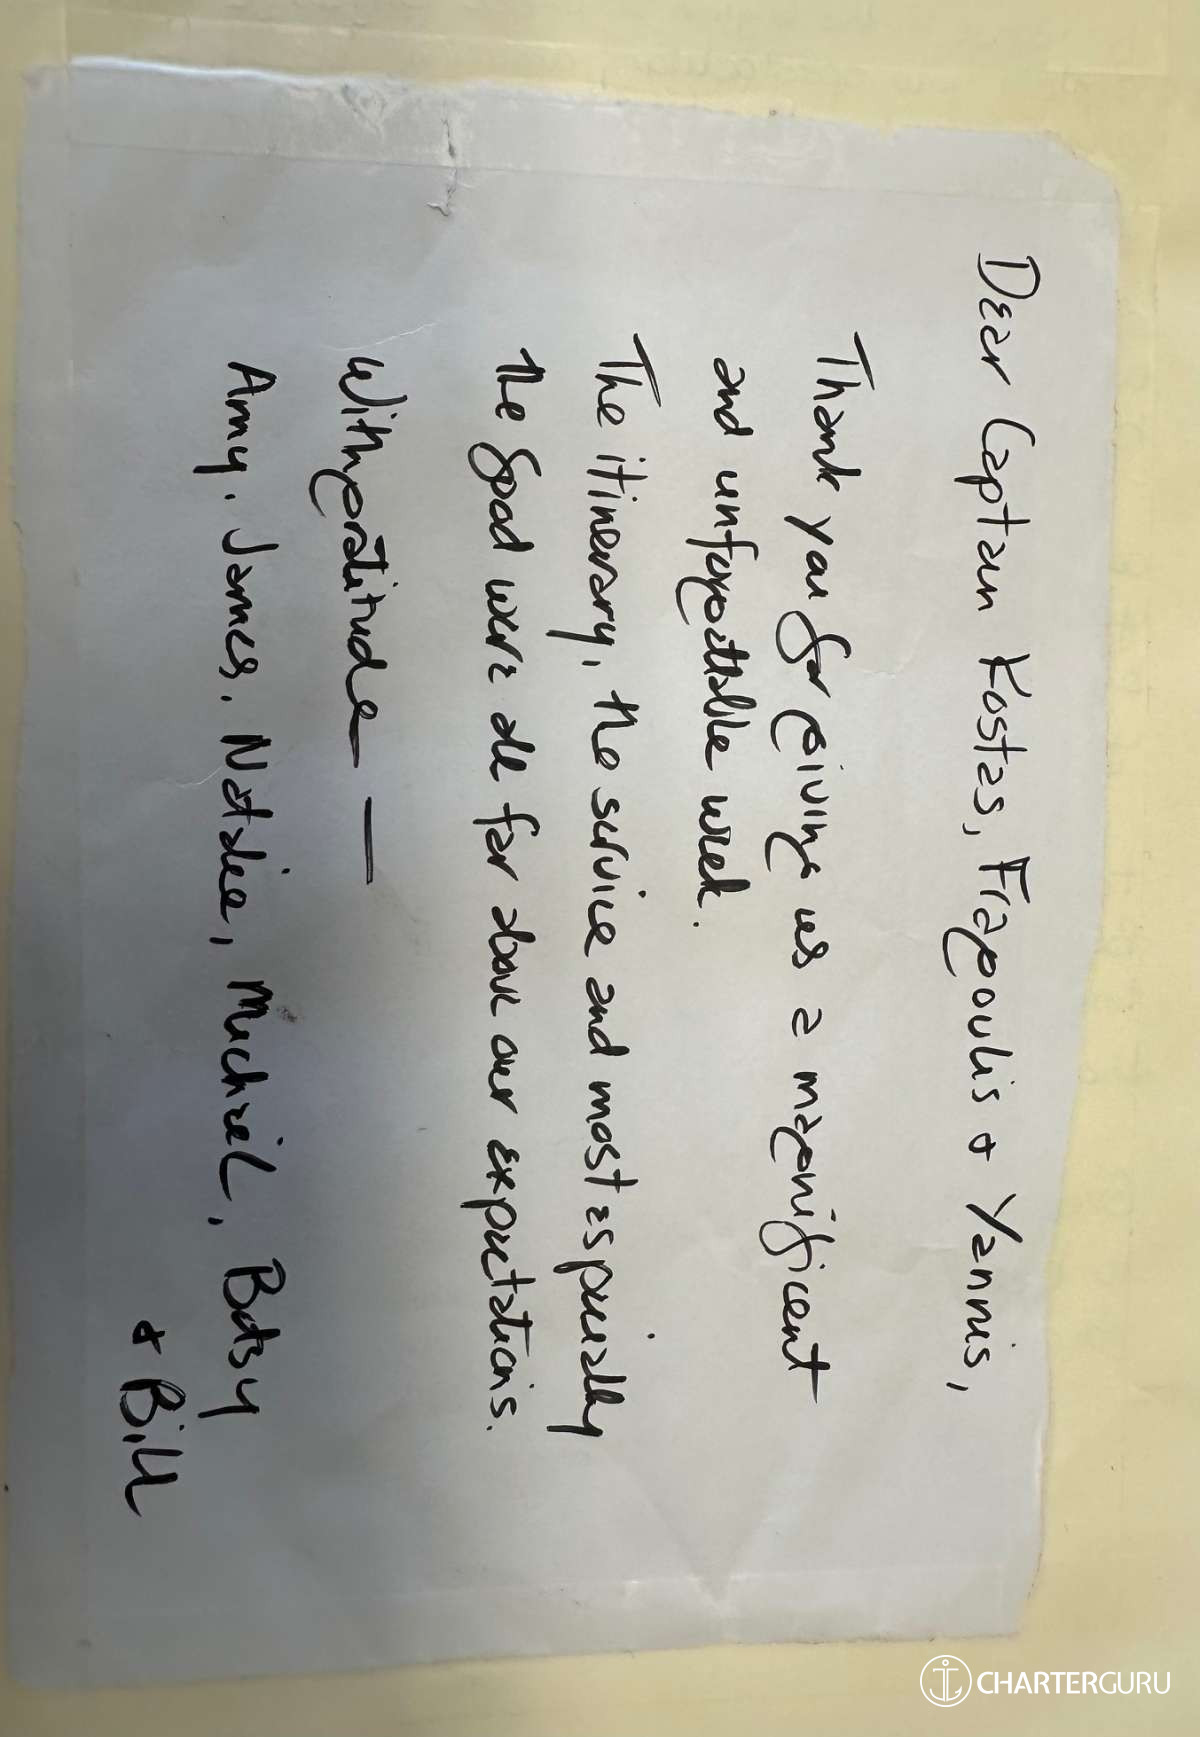 Dear Captain Kostas, Fragoulis & Yannis,
Thank you for giving us a magnificent
and unforgettable week.
The itinerary, the service and most especially
the food were all far above our expectations.
With gratitude —
Amy, James, Natalie, Michael, Betsy
& Bill
CHARTERGURU